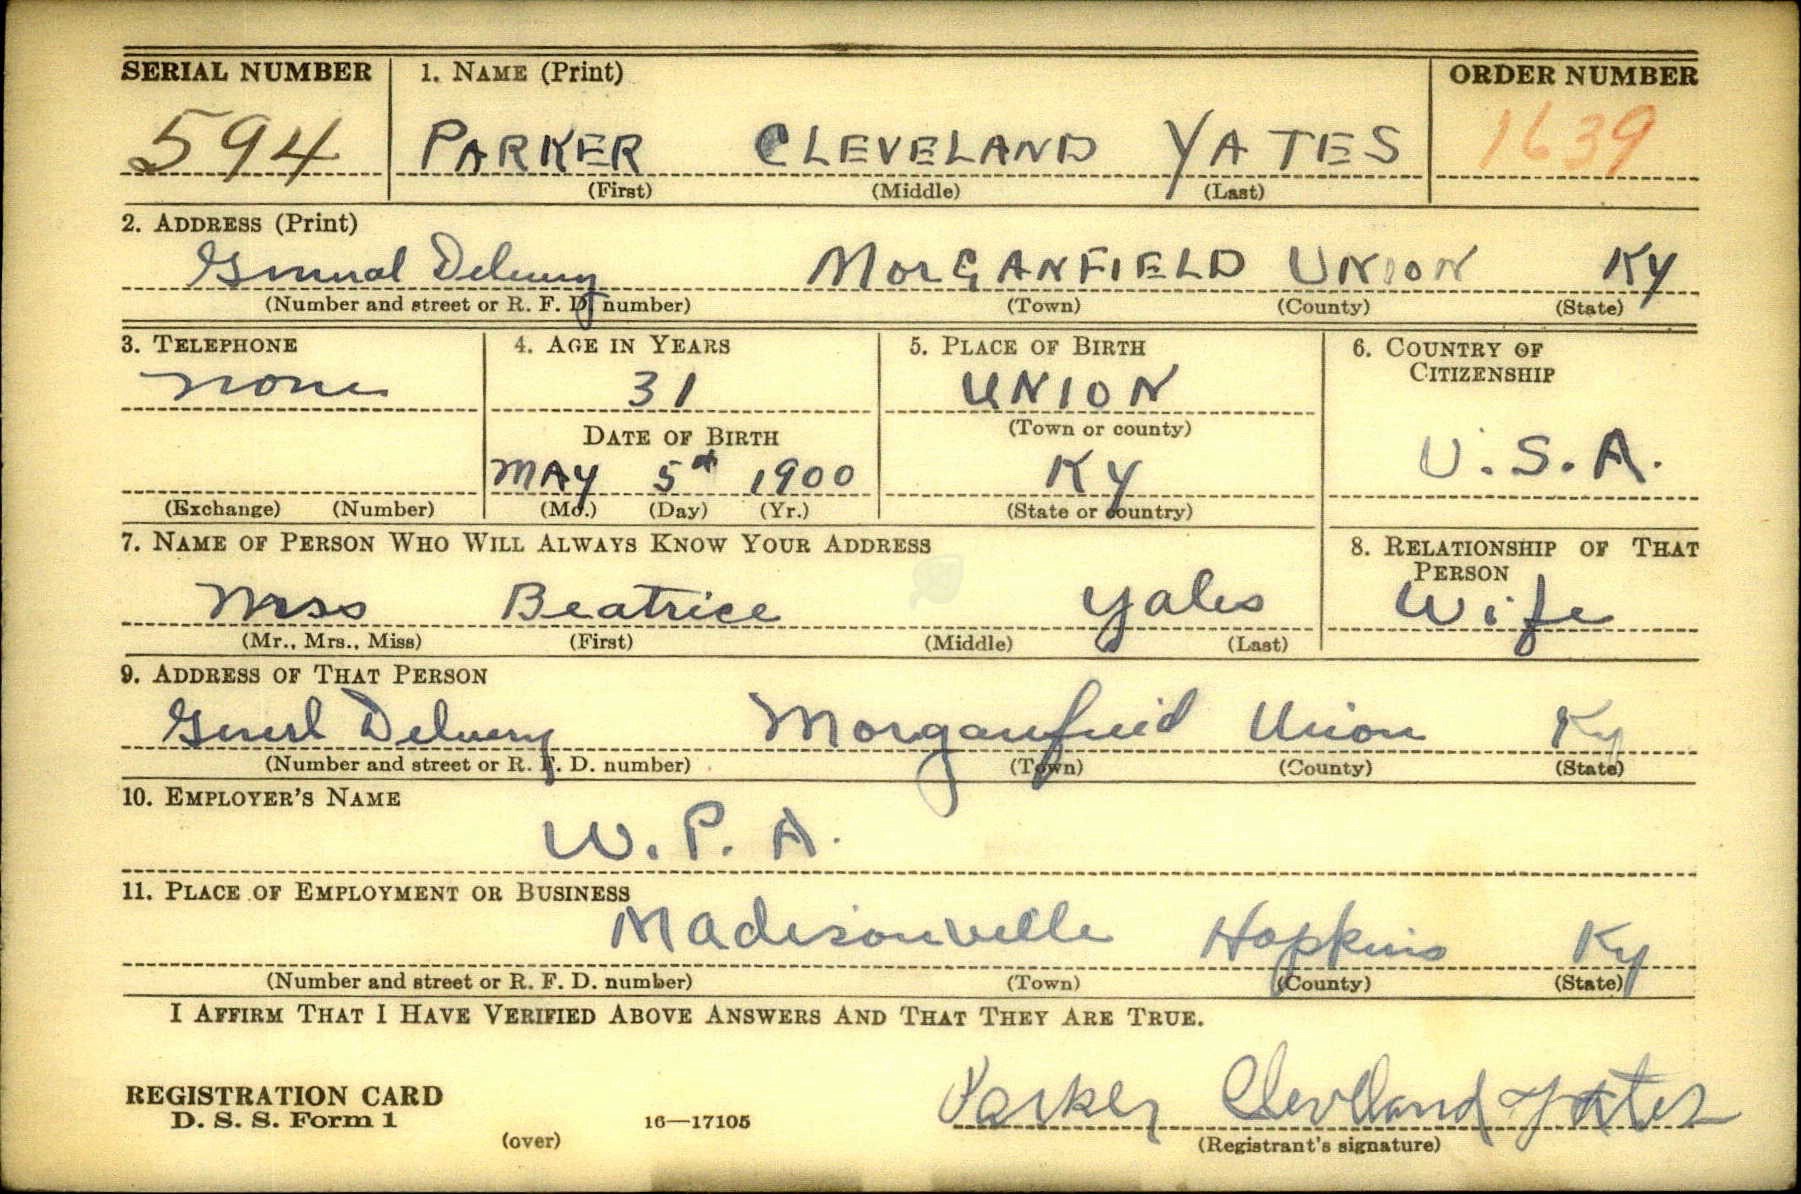 SERIAL NUMBER 1. NAME (Print) ORDER NUMBER
594 PARKER CLEVELAND YATES 1639
(First) (Middle) (Last)
2. ADDRESS (Print)
General Delivery MORGANFIELD UNION KY
(Number and street or R. F. D. number) (Town) (County) (State)
3. TELEPHONE 4. AGE IN YEARS 5. PLACE OF BIRTH 6. COUNTRY OF CITIZENSHIP
none 31 UNION
DATE OF BIRTH (Town or county)
MAY 5th 1900 KY U.S.A.
(Exchange) (Number) (Mo.) (Day) (Yr.) (State or country)
7. NAME OF PERSON WHO WILL ALWAYS KNOW YOUR ADDRESS 8. RELATIONSHIP OF THAT PERSON
Mrss Beatrice Yates Wife
(Mr., Mrs., Miss) (First) (Middle) (Last)
9. ADDRESS OF THAT PERSON
Generl Delivery Morganfield Union Ky
(Number and street or R. F. D. number) (Town) (County) (State)
10. EMPLOYER'S NAME
W. P. A.
11. PLACE OF EMPLOYMENT OR BUSINESS
Madisonville Hopkins Ky
(Number and street or R. F. D. number) (Town) (County) (State)
I AFFIRM THAT I HAVE VERIFIED ABOVE ANSWERS AND THAT THEY ARE TRUE.
REGISTRATION CARD
D. S. S. Form 1 16—17105 Parker Clevland Yates
(over) (Registrant's signature)